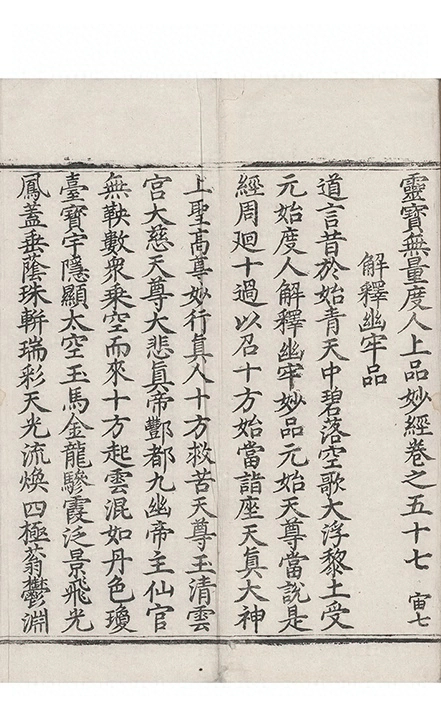 靈寳無量度人上品妙經卷之五十七 宙七
解釋幽牢品
道言昔於始青天中碧落空歌大浮黎土受
元始度人解釋幽牢妙品元始天尊當說是
經周廻十過以召十方始當詣座天真大神
上聖高尊妙行真人十方救苦天尊玉清雲
宮大慈天尊大悲真帝酆都九幽帝主仙官
無鞅數衆乘空而來十方起雲混如丹色瓊
臺寳宇隱顯太空玉馬金龍驂霞泛景飛光
鳳蓋垂蔭珠軿瑞彩天光流煥四極蓊鬱淵